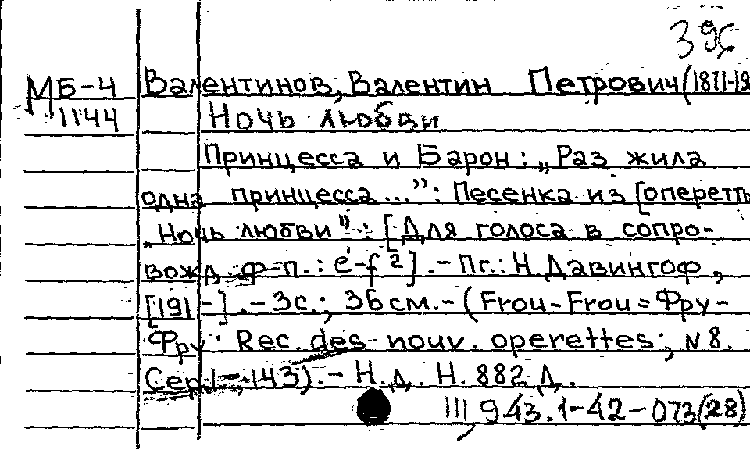 39
МБ-4 Валентинов, Валентин Петрович (1871-19
1144 Ночь любви
Принцесса и Барон: „Раз жила
одна принцесса...": Песенка из [оперетты
„Ночь любви": [Для голоса в сопро-
вожд. ф-п.: e'-f²]. - Пг.: Н. Давингоф,
[191-]. - 3с.; 36см. - (Frou-Frou = Фру-
Фру: Rec. des nouv. operettes; N 8.
Сер.1-, 143). - Н.д. Н. 882 Д.
III, 943.1-42-073(28)